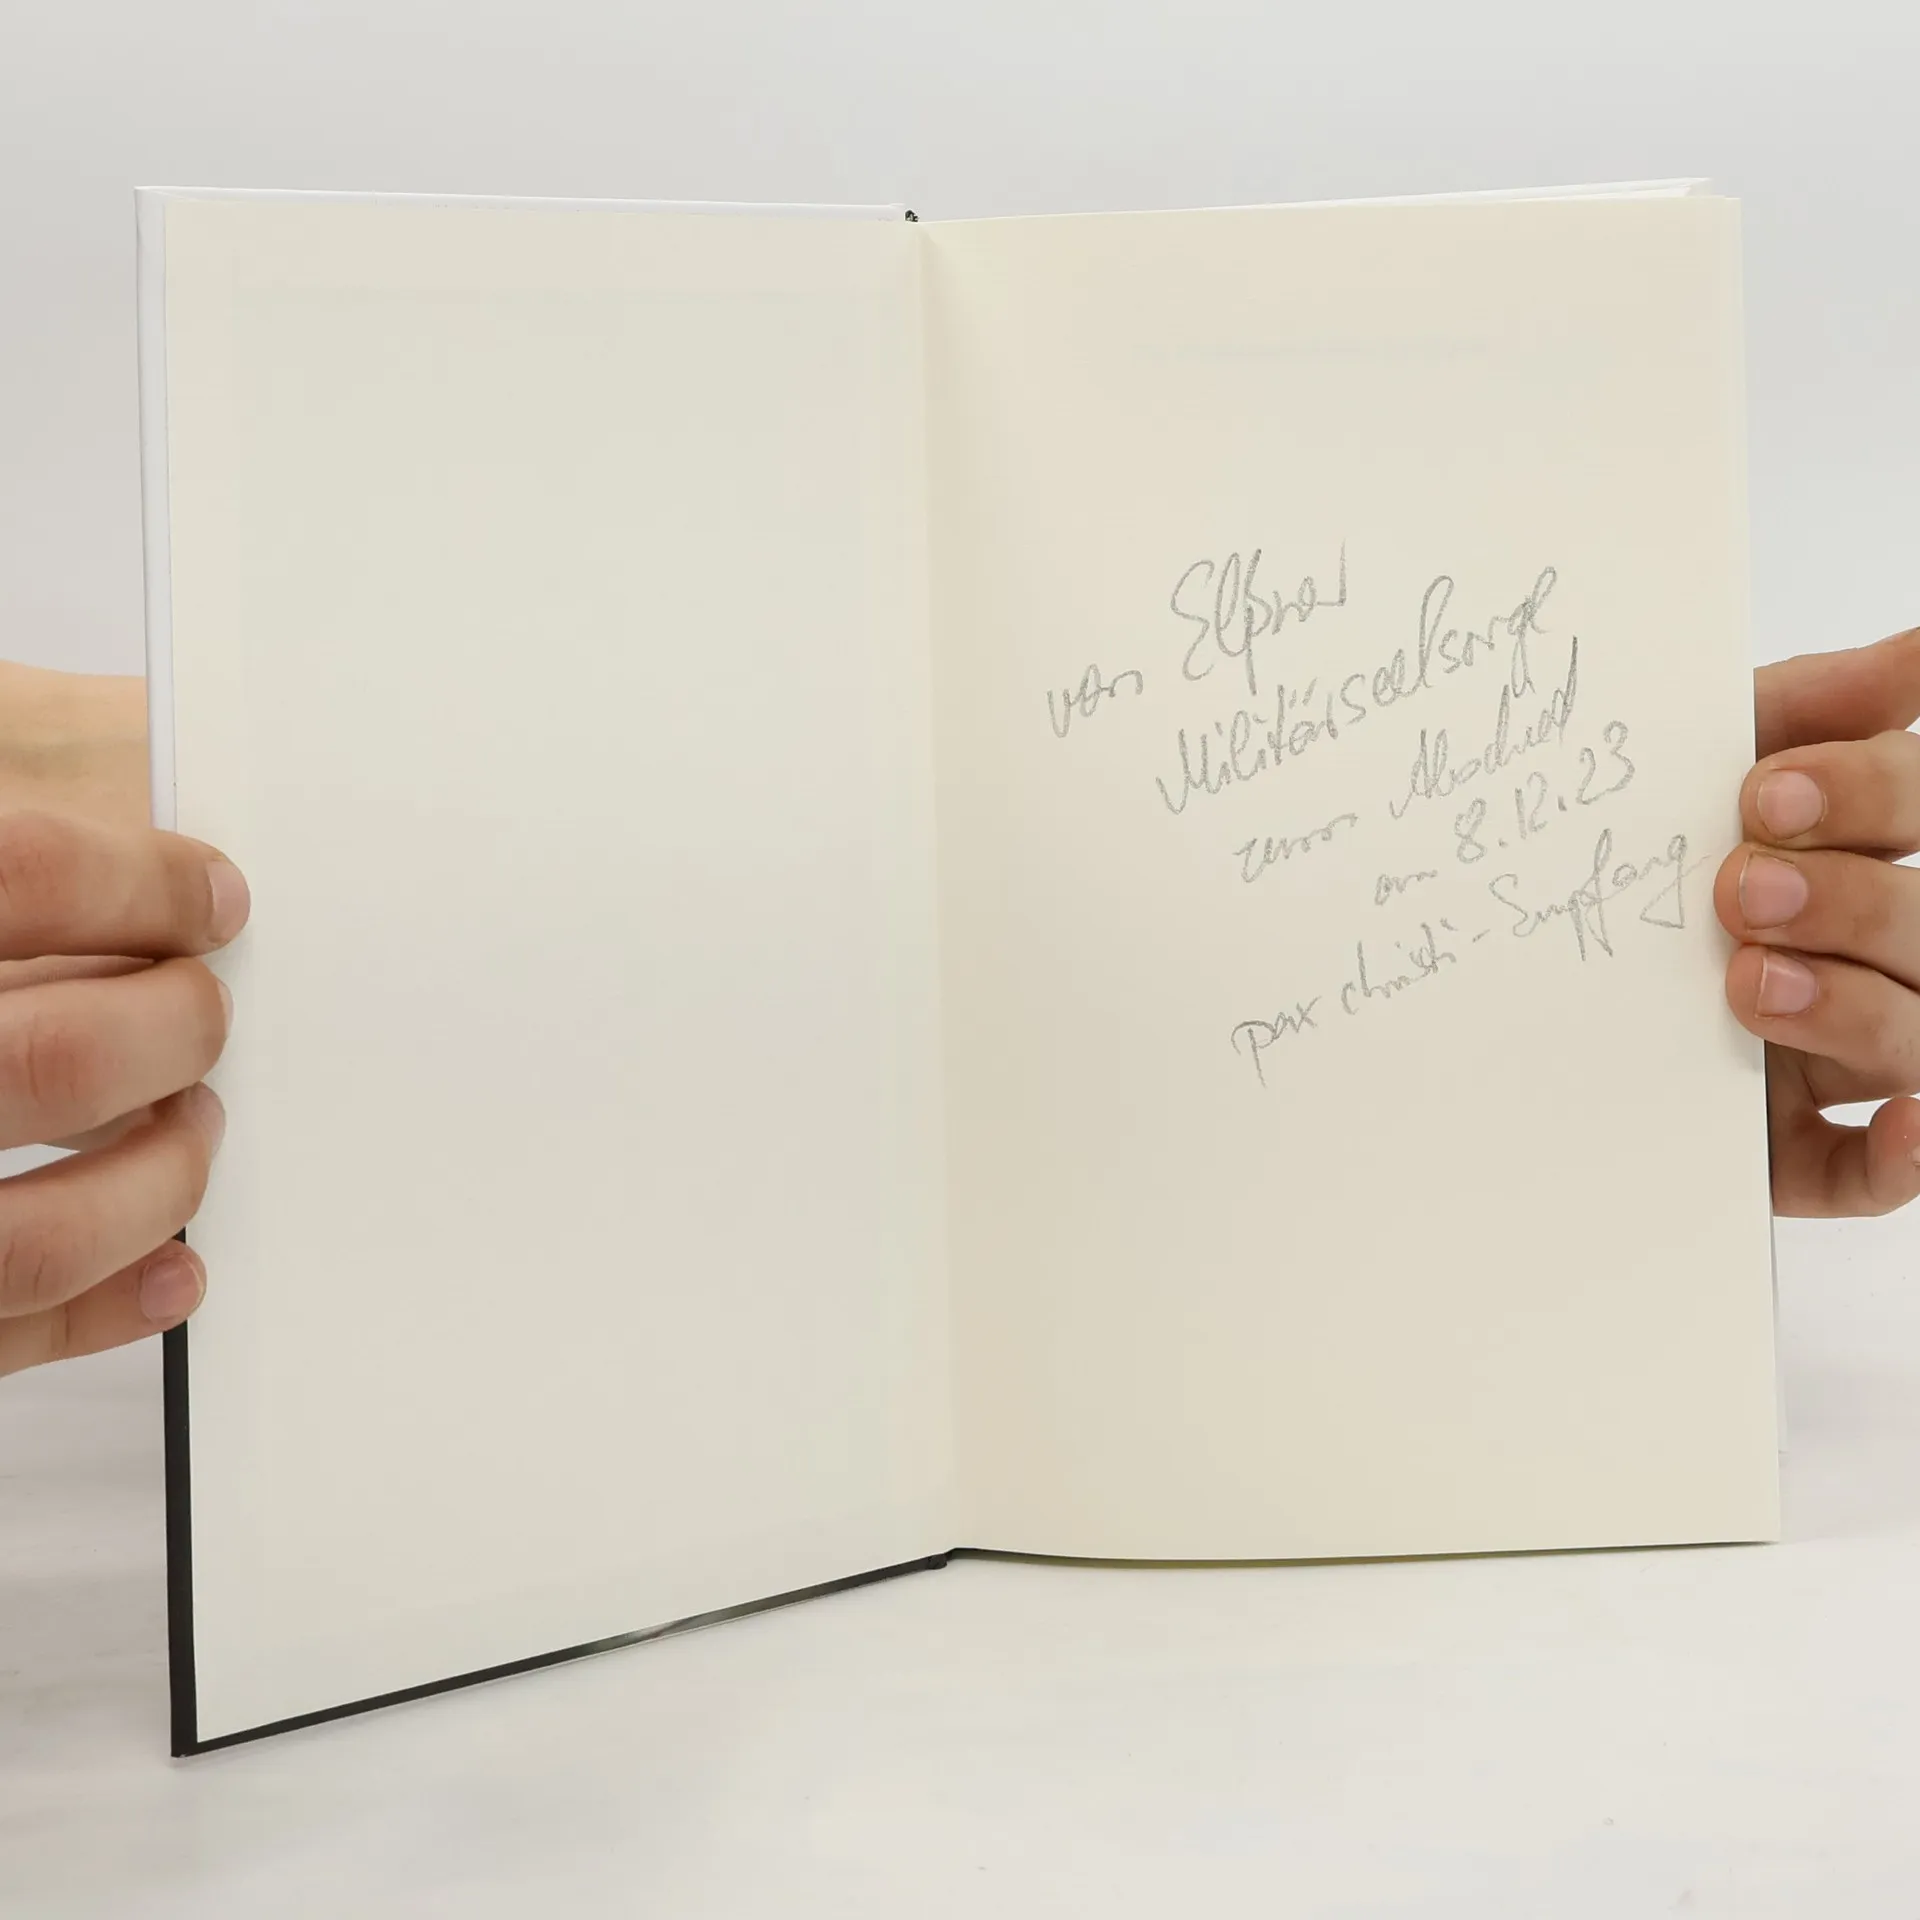 von Elßner
Militärseelsorge
zum Abschied
am 8.12.23
pax christi - Empfang